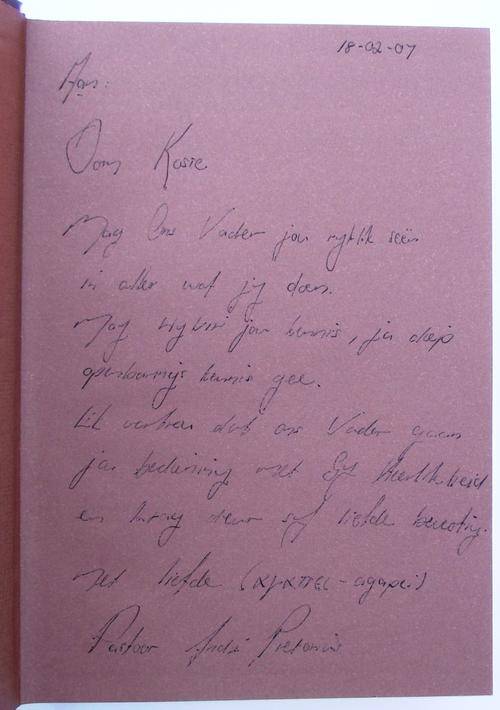 18-02-07
Aan:
Oom Kosie
Mag Ons Vader jou ryklik seën
in alles wat jy doen.
Mag Hy vir jou kennis, ja diep
openbarings kennis gee.
Ek vertrou dat ons Vader gaan
jou bediening met Sy Heerlikheid
en krag deur sy liefde bevestig.
Met liefde (αγαπει - agapei)
Pastoor André Pretorius